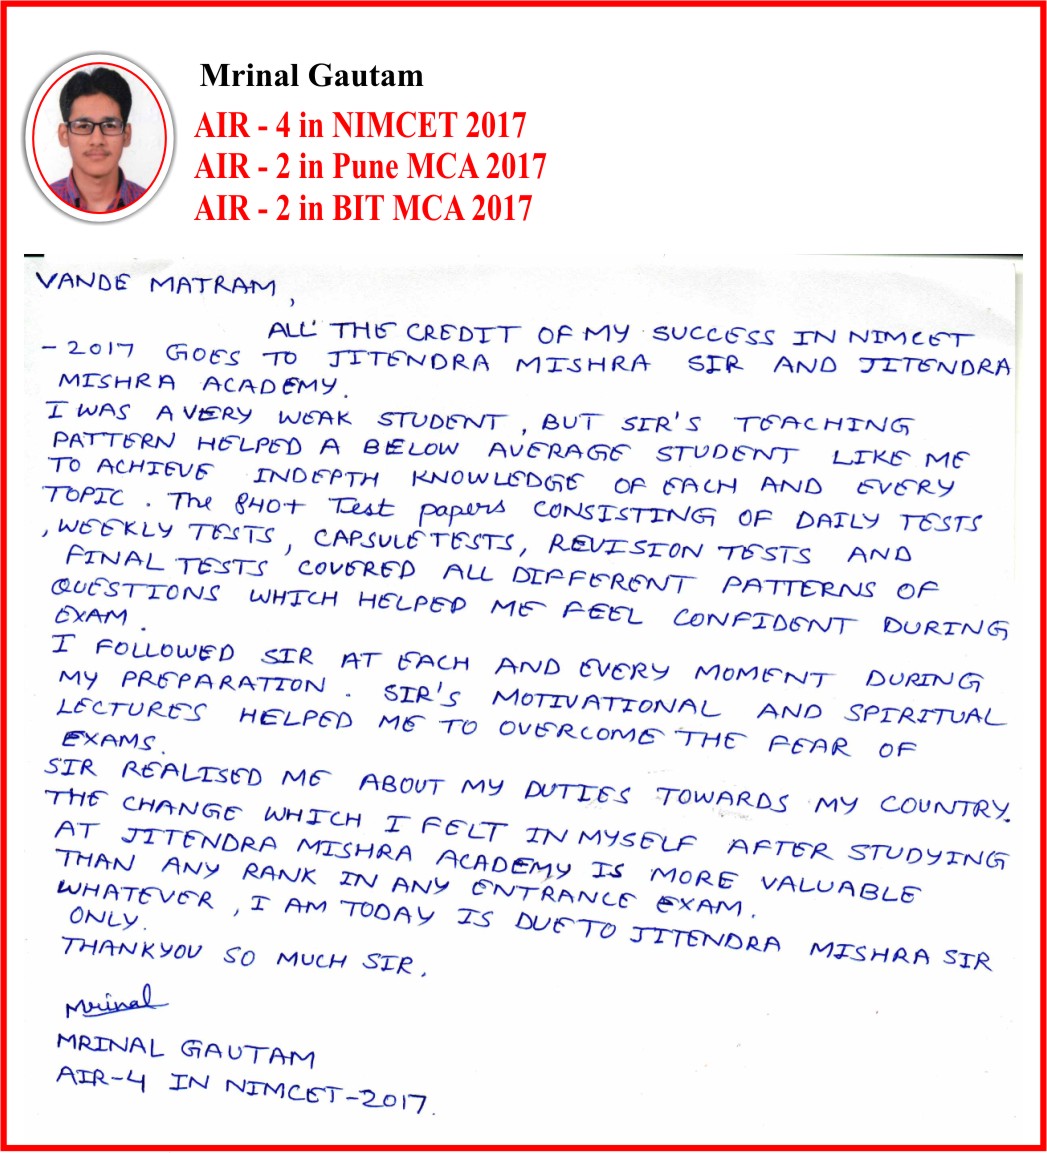 Mrinal Gautam
AIR - 4 in NIMCET 2017
AIR - 2 in Pune MCA 2017
AIR - 2 in BIT MCA 2017
VANDE MATRAM,
ALL THE CREDIT OF MY SUCCESS IN NIMCET
- 2017 GOES TO JITENDRA MISHRA SIR AND JITENDRA
MISHRA ACADEMY.
I WAS A VERY WEAK STUDENT, BUT SIR'S TEACHING
PATTERN HELPED A BELOW AVERAGE STUDENT LIKE ME
TO ACHIEVE INDEPTH KNOWLEDGE OF EACH AND EVERY
TOPIC. The 840+ Test papers CONSISTING OF DAILY TESTS
, WEEKLY TESTS, CAPSULE TESTS, REVISION TESTS AND
FINAL TESTS COVERED ALL DIFFERENT PATTERNS OF
QUESTIONS WHICH HELPED ME FEEL CONFIDENT DURING
EXAM.
I FOLLOWED SIR AT EACH AND EVERY MOMENT DURING
MY PREPARATION. SIR'S MOTIVATIONAL AND SPIRITUAL
LECTURES HELPED ME TO OVERCOME THE FEAR OF
EXAMS.
SIR REALISED ME ABOUT MY DUTIES TOWARDS MY COUNTRY.
THE CHANGE WHICH I FELT IN MYSELF AFTER STUDYING
AT JITENDRA MISHRA ACADEMY IS MORE VALUABLE
THAN ANY RANK IN ANY ENTRANCE EXAM.
WHATEVER, I AM TODAY IS DUE TO JITENDRA MISHRA SIR
ONLY.
THANKYOU SO MUCH SIR.
Mrinal
MRINAL GAUTAM
AIR-4 IN NIMCET-2017.